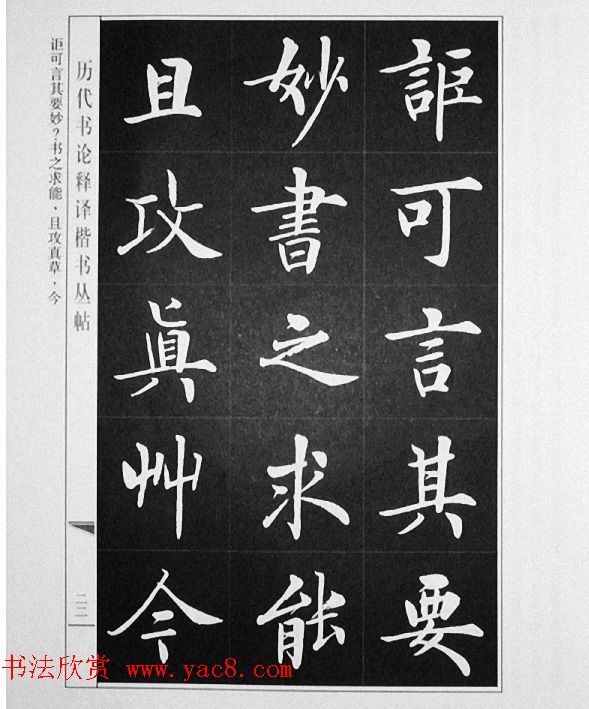 詎可言其要
妙書之求能
且攻眞艸今
历代书论释译楷书丛帖
讵可言其要妙？书之求能，且攻真草，今
二二
书法欣赏 www.yac8.com